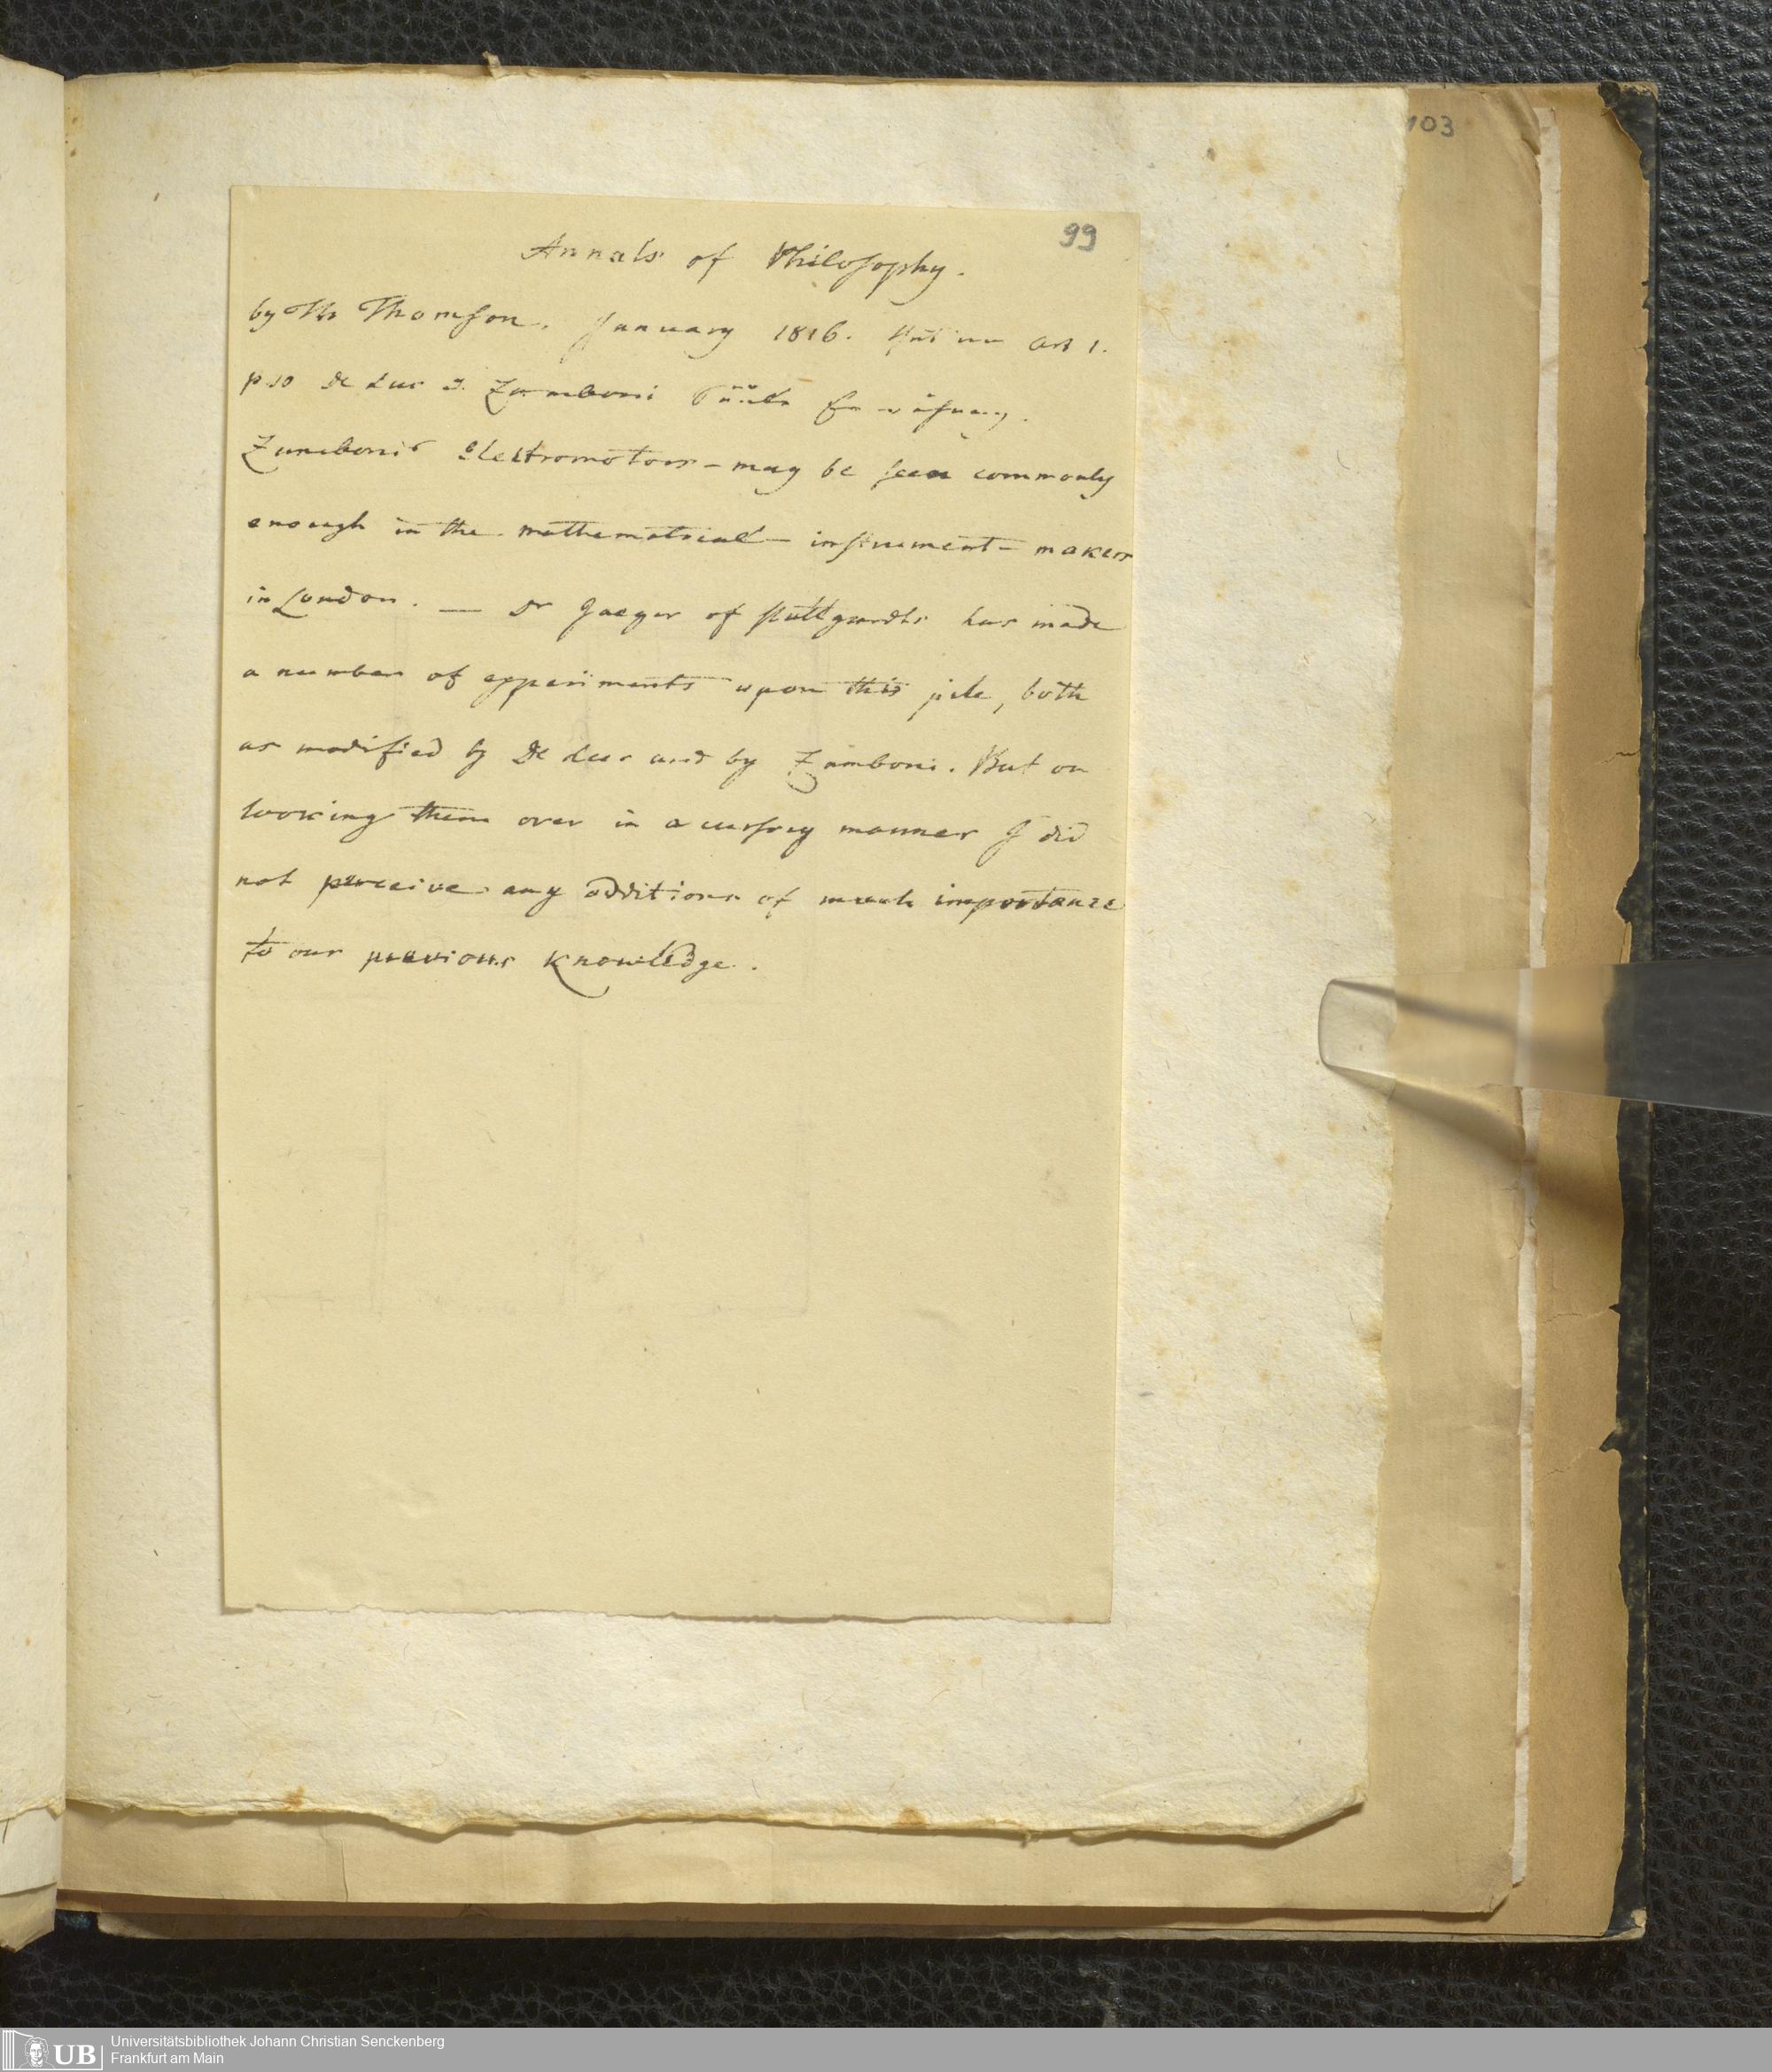 103
99
Annals of Philosophy.
by Th Thomson. January 1816. Art 1.
p 10 De Luc u. Zamboni Säule Erwähnung.
Zamboni's Electromotors - may be seen commonly
enough in the mathematical - instrument - makers
in London. — Dr Jaeger of Stuttgardts has made
a number of experiments upon this pile, both
as modified by De Luc and by Zamboni. But on
looking them over in a cursory manner I did
not perceive any additions of much importance
to our previous knowledge.
UB
Universitätsbibliothek Johann Christian Senckenberg
Frankfurt am Main